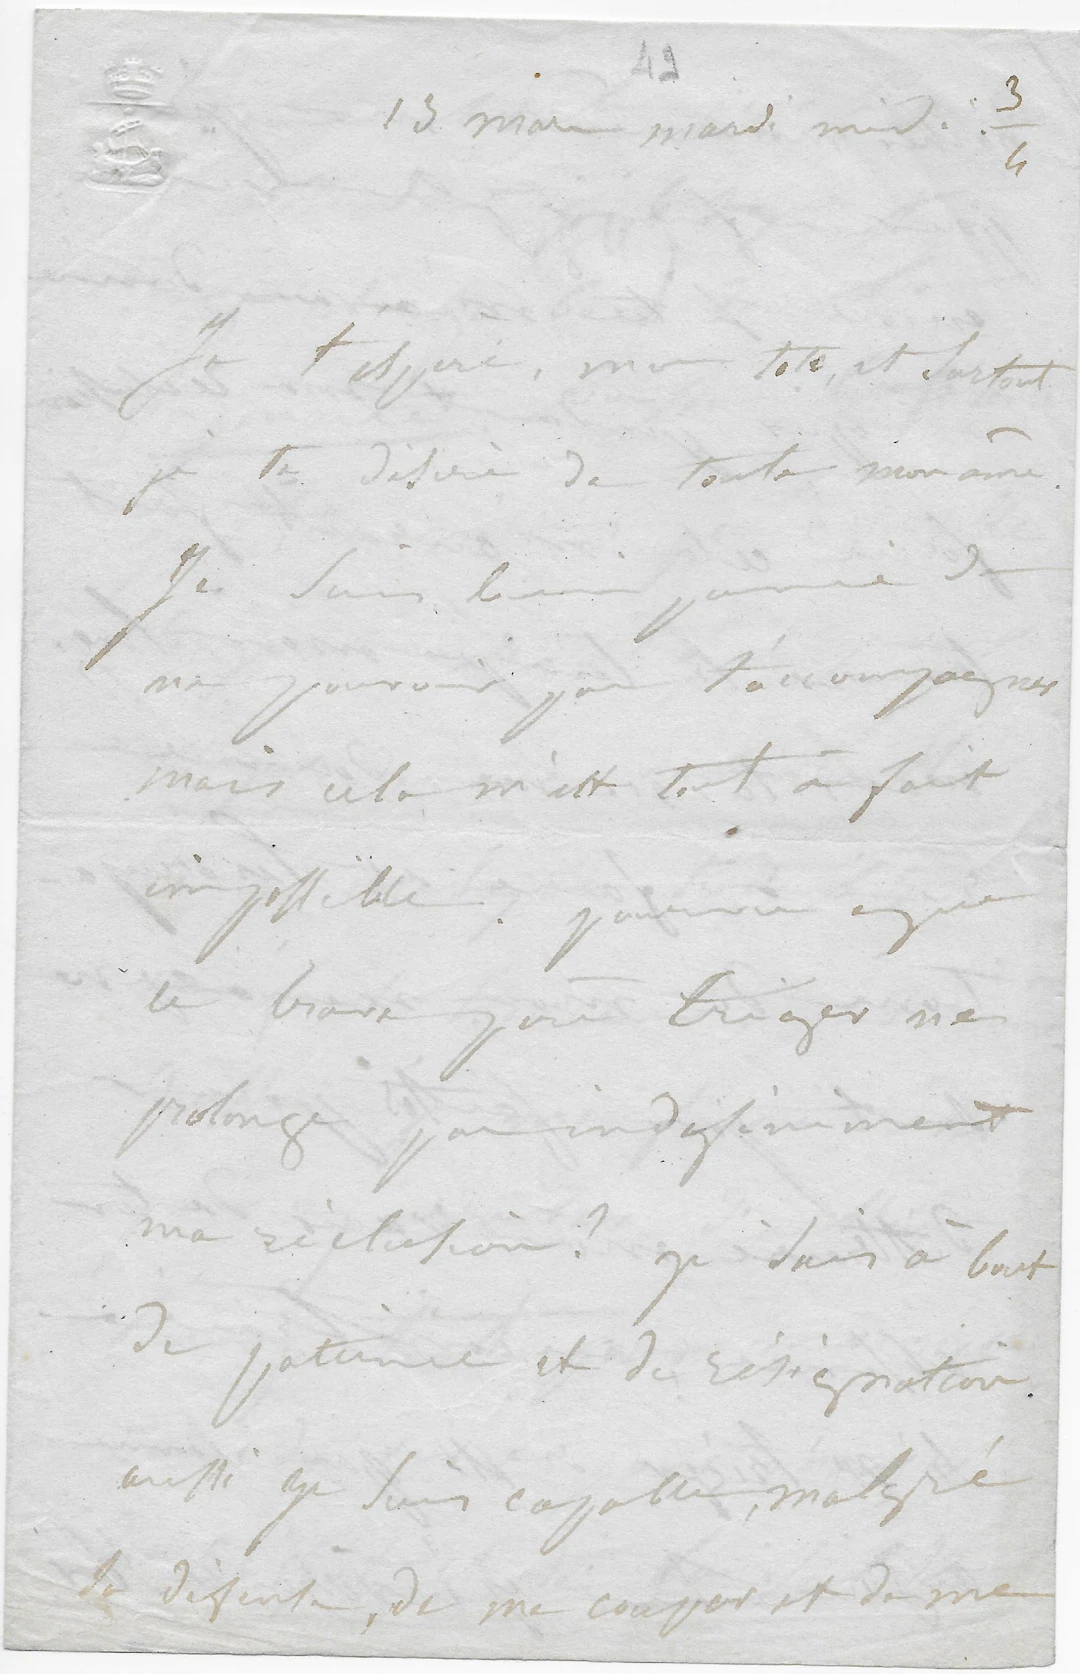 42
13 mars mardi midi 3/4
Je t'espère, mon toto, et surtout
je te désire de toute mon âme.
Je suis bien
ne pouvoir pas t'accompagner
mais cela m'est tout à fait
impossible. pourvu que
le brave père Triger ne
prolonge pas indéfiniment
ma réclusion ? je suis à bout
de patience et de résignation.
aussi je suis capable, malgré
sa défense, de me couper et de me